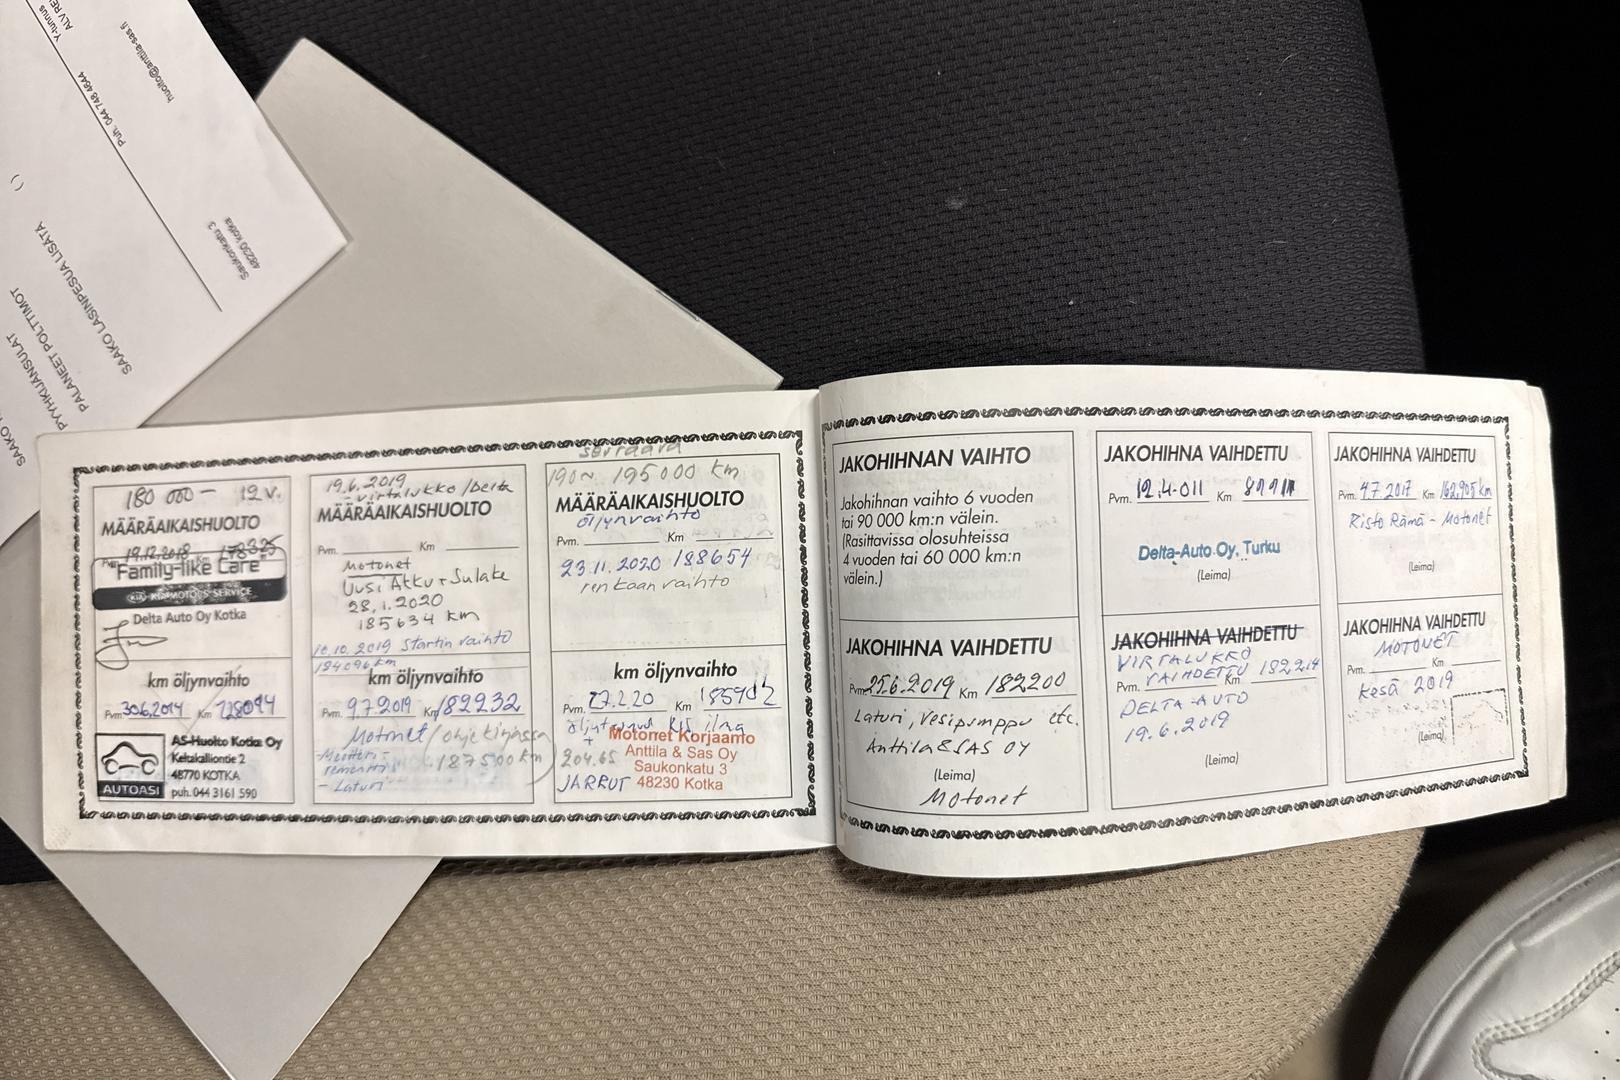 Y-tunnus
ALV RE
huolto@anttila-sas.fi
Puh. 044 748 4644
Saukonkatu 3
48230 kotka
()
SAAKO LASINPESUA LISÄTÄ
PALANEET POLTTIMOT
PYYHKIJANSULAT
SAAKO
180 000 - 12 v.
MÄÄRÄAIKAISHUOLTO
Pvm. 19.12.2018 Km 178325
Family-like Care
KIA MOTORS SERVICE
Delta Auto Oy Kotka
km öljynvaihto
Pvm. 30.6.2014 Km 128094
AS-Huolto Kotka Oy
Keltakalliontie 2
48770 KOTKA
puh. 044 3161 590
AUTOASI
19.6.2019
- virtalukko / Delta
MÄÄRÄAIKAISHUOLTO
Pvm. Km
Motonet
Uusi Akku + Sulake
28.1.2020
185634 km
10.10.2019 Startin vaihto
184096 km
km öljynvaihto
Pvm. 9.7.2019 Km 182232
Motonet / ohjekirjassa
187500 km
- Laturi
seuraava
190~ 195 000 km
MÄÄRÄAIKAISHUOLTO
öljynvaihto
Pvm. Km
23.11.2020 188654
renkaan vaihto
km öljynvaihto
Pvm. 27.2.20 Km 185902
+
204.65
JARRUT
Motonet Korjaamo
Anttila & Sas Oy
Saukonkatu 3
48230 Kotka
JAKOHIHNAN VAIHTO
Jakohihnan vaihto 6 vuoden
tai 90 000 km:n välein.
(Rasittavissa olosuhteissa
4 vuoden tai 60 000 km:n
välein.)
JAKOHIHNA VAIHDETTU
Pvm. 25.6.2019 Km 182200
Laturi, Vesipumppu etc.
Anttila & SAS OY
(Leima)
Motonet
JAKOHIHNA VAIHDETTU
Pvm. 12.4-011 Km
Delta-Auto Oy, Turku
(Leima)
JAKOHIHNA VAIHDETTU
VIRTALUKKO
VAIHDETTU
Pvm. Km 182214
DELTA-AUTO
19.6.2019
(Leima)
JAKOHIHNA VAIHDETTU
Pvm. 4.7.2017 Km 162,905 km
Risto Rämä - Motonet
(Leima)
JAKOHIHNA VAIHDETTU
MOTONET
Pvm. Km
Kesä 2019
(Leima)